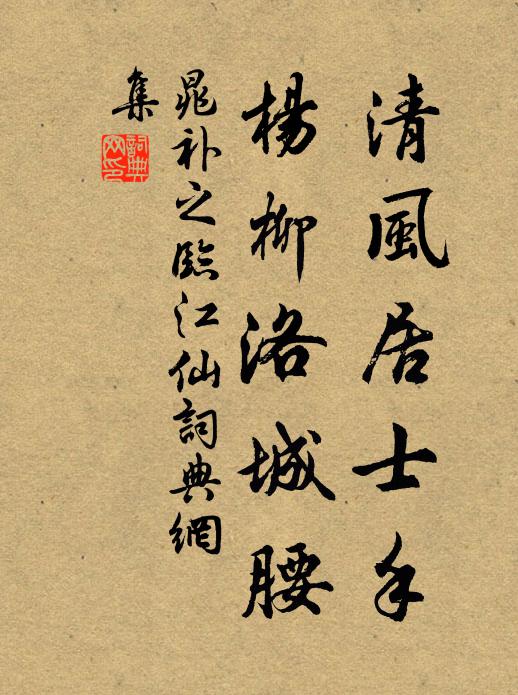 清風居士手
楊柳洛城腰
晁補之臨江仙詞典網
集
詞典網印